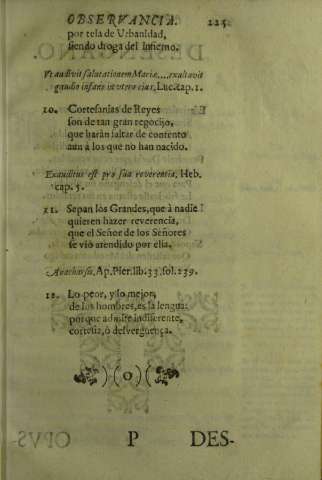 OBSERVANCIA. 225.
por tela de Urbanidad,
siendo droga del Infierno.
Vt audivit salutationem Mariæ.... exultavit
gaudio infans in utero eius, Luc. cap. 1.
10. Cortesanías de Reyes
son de tan gran regocijo,
que harán saltar de contento
aun à los que no han nacido.
Exauditus est pro sua reverentia, Heb.
cap. 5.
11. Sepan los Grandes, que à nadie
quiten hazer reverencia,
que el Señor de los Señores
se viò atendido por ella.
Anacharsis, Ap. Pier. lib. 33. fol. 239.
12. Lo peor, y lo mejor
de los hombres, es la lengua:
porque admite indiferente,
cortesia, ò desverguença.
)(o)(
P DES-